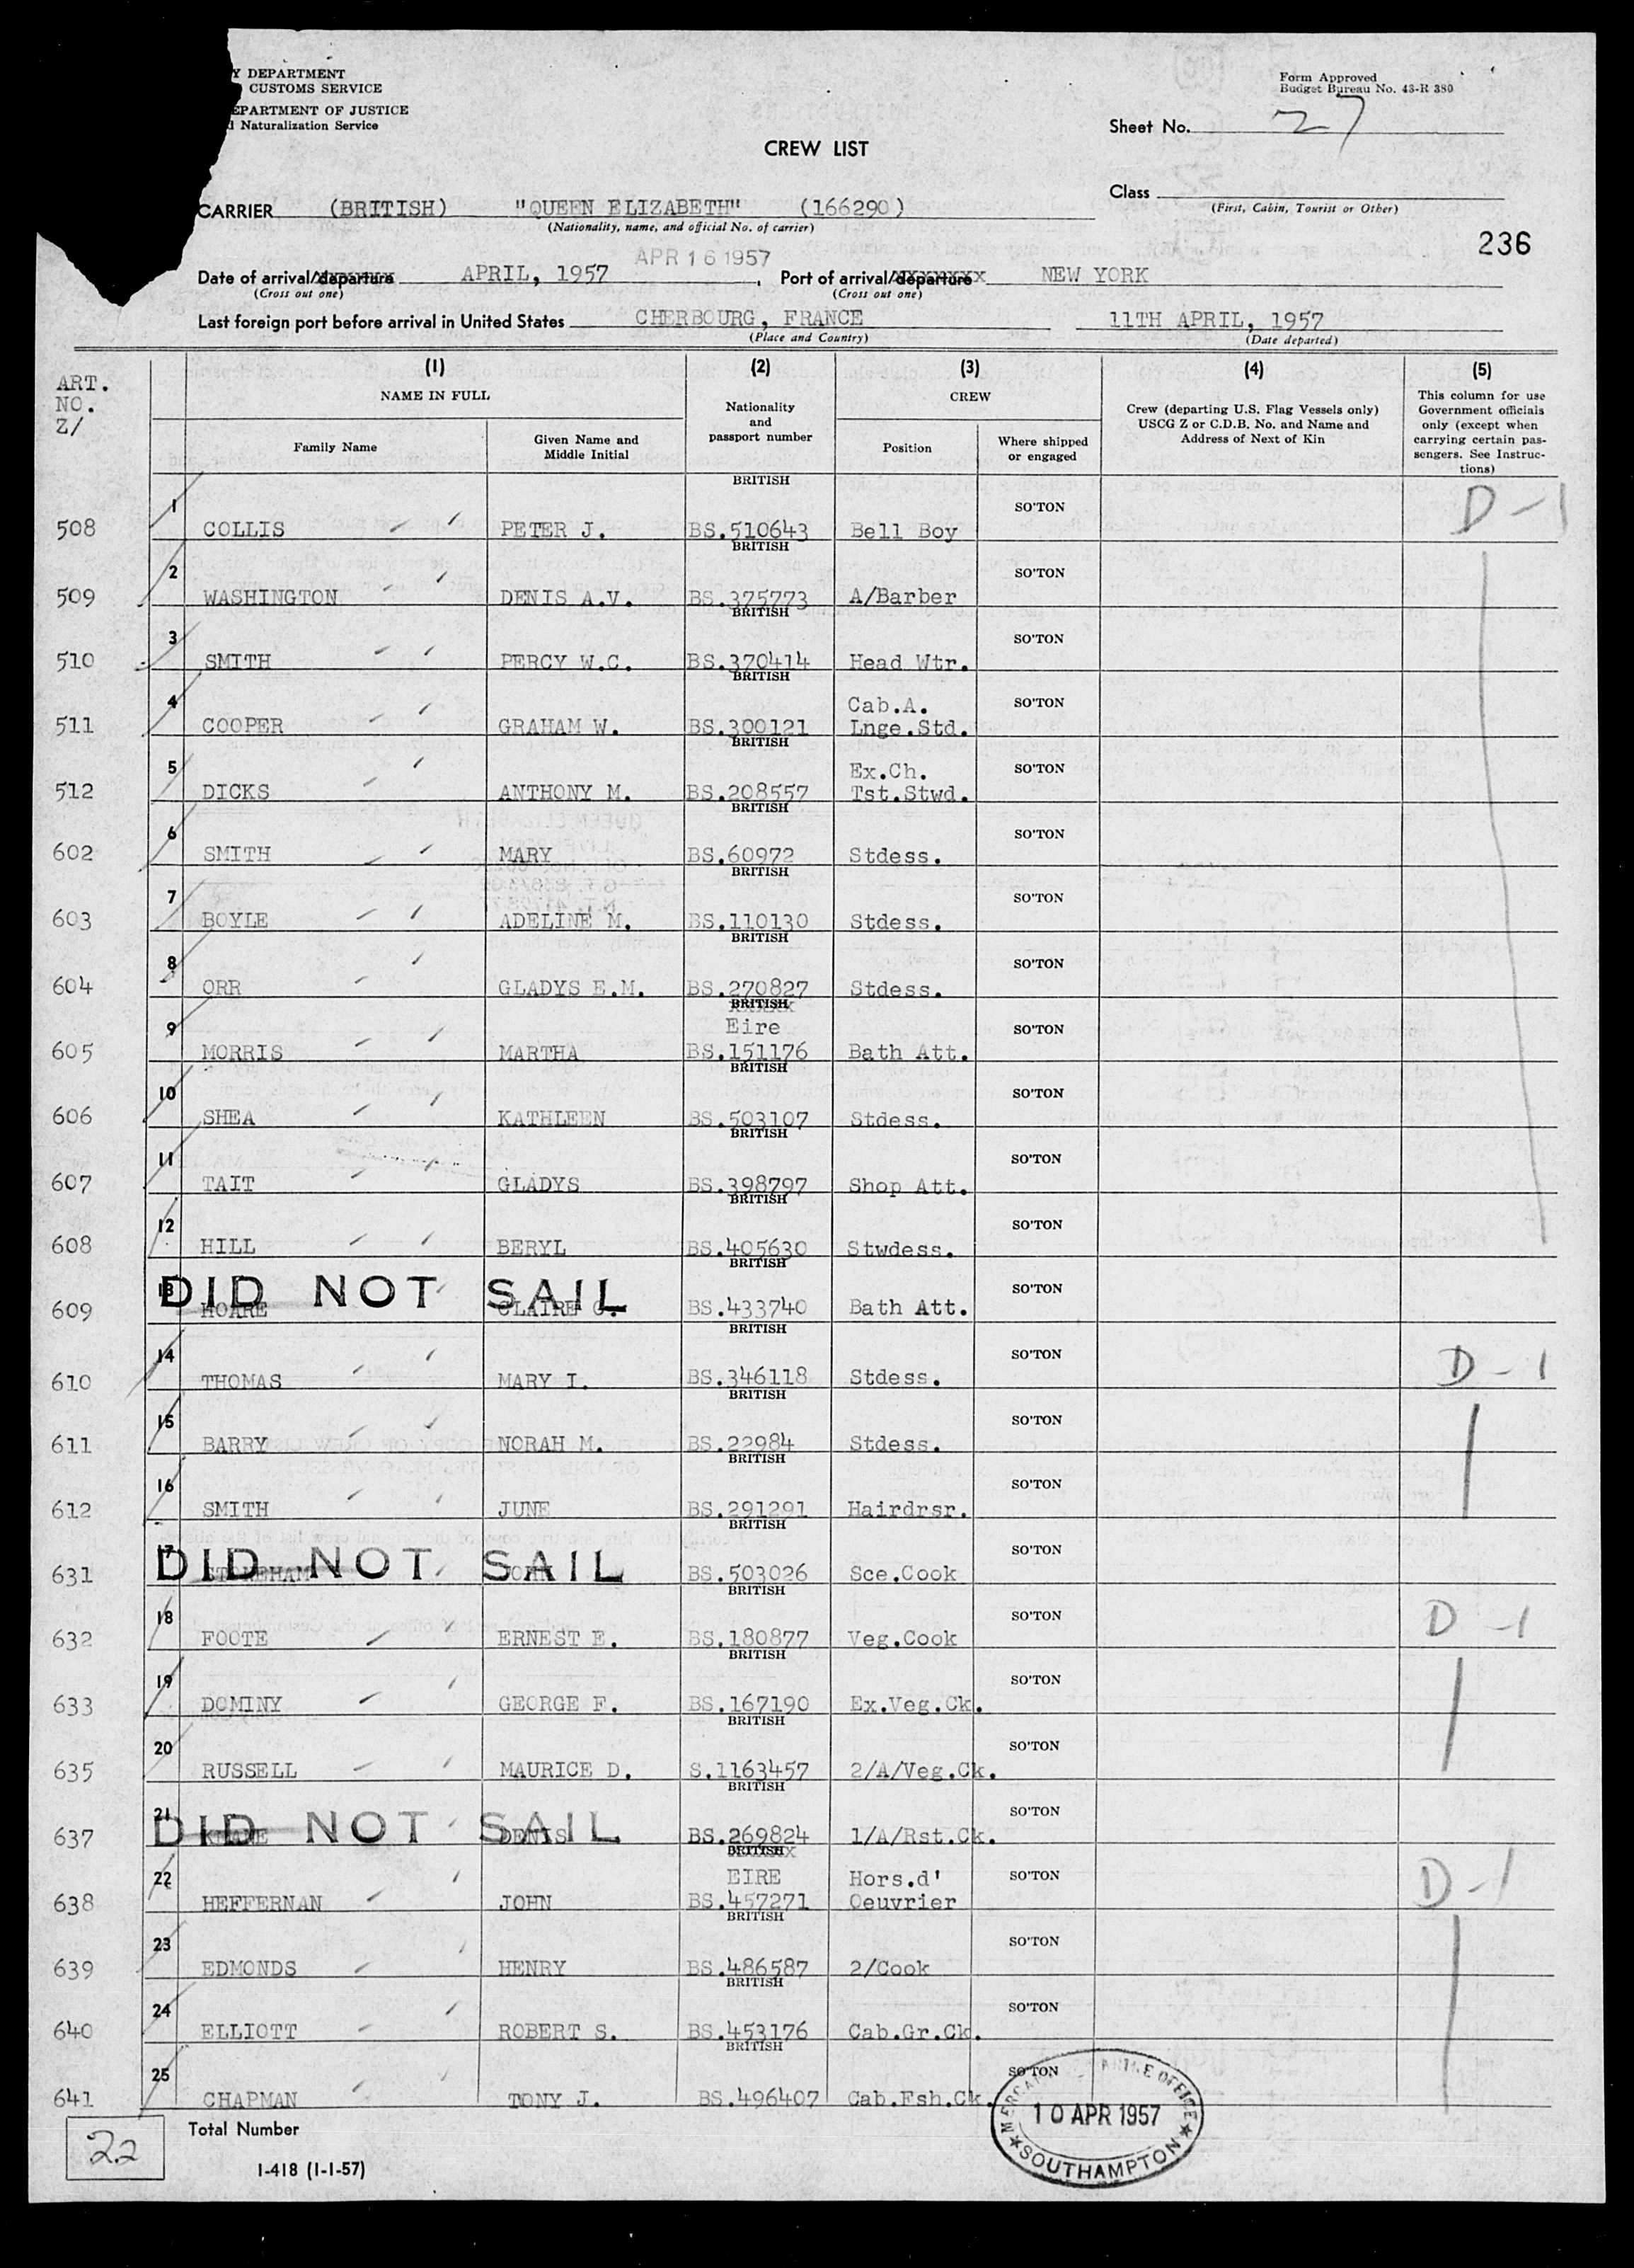 Y DEPARTMENT
CUSTOMS SERVICE
EPARTMENT OF JUSTICE
d Naturalization Service
Form Approved
Budget Bureau No. 43-R 380
Sheet No. 27
CREW LIST
Class
(First, Cabin, Tourist or Other)
CARRIER (BRITISH) "QUEEN ELIZABETH" (166290)
(Nationality, name, and official No. of carrier)
236
APR 16 1957
Date of arrival/departure APRIL, 1957, Port of arrival/departure NEW YORK
(Cross out one) (Cross out one)
Last foreign port before arrival in United States CHERBOURG, FRANCE 11TH APRIL, 1957
(Place and Country) (Date departed)
ART. NO. Z/
(1) (2) (3) (4) (5)
NAME IN FULL
Family Name
Given Name and Middle Initial
Nationality and passport number
CREW
Position
Where shipped or engaged
Crew (departing U.S. Flag Vessels only) USCG Z or C.D.B. No. and Name and Address of Next of Kin
This column for use Government officials only (except when carrying certain passengers. See Instructions)
508 1 COLLIS PETER J. BRITISH BS.510643 Bell Boy SO'TON D-1
509 2 WASHINGTON DENIS A.V. BRITISH BS.375773 A/Barber SO'TON
510 3 SMITH PERCY W.C. BRITISH BS.370414 Head Wtr. SO'TON
511 4 COOPER GRAHAM W. BRITISH BS.300121 Cab.A. Lnge.Std. SO'TON
512 5 DICKS ANTHONY M. BRITISH BS.208557 Ex.Ch. Tst.Stwd. SO'TON
602 6 SMITH MARY BRITISH BS.60972 Stdess. SO'TON
603 7 BOYLE ADELINE M. BRITISH BS.110130 Stdess. SO'TON
604 8 ORR GLADYS E.M. BRITISH BS.270827 Stdess. SO'TON
605 9 MORRIS MARTHA BRITISH Eire BS.151176 Bath Att. SO'TON
606 10 SHEA KATHLEEN BRITISH BS.503107 Stdess. SO'TON
607 11 TAIT GLADYS BRITISH BS.398797 Shop Att. SO'TON
608 12 HILL BERYL BRITISH BS.405630 Stwdess. SO'TON
609 13 HOARE CLAIRE G. BRITISH BS.433740 Bath Att. SO'TON
DID NOT SAIL
610 14 THOMAS MARY I. BRITISH BS.346118 Stdess. SO'TON D-1
611 15 BARRY NORAH M. BRITISH BS.22984 Stdess. SO'TON
612 16 SMITH JUNE BRITISH BS.291291 Hairdrsr. SO'TON
631 17 BRITISH BS.503026 Sce.Cook SO'TON
DID NOT SAIL
632 18 FOOTE ERNEST E. BRITISH BS.180877 Veg.Cook SO'TON D-1
633 19 DOMINY GEORGE F. BRITISH BS.167190 Ex.Veg.Ck. SO'TON
635 20 RUSSELL MAURICE D. BRITISH S.1163457 2/A/Veg.Ck. SO'TON
637 21 DENIS BRITISH BS.269824 1/A/Rst.Ck. SO'TON
DID NOT SAIL
638 22 HEFFERNAN JOHN BRITISH EIRE BS.457271 Hors.d' Oeuvrier SO'TON D-1
639 23 EDMONDS HENRY BRITISH BS.486587 2/Cook SO'TON
640 24 ELLIOTT ROBERT S. BRITISH BS.453176 Cab.Gr.Ck. SO'TON
641 25 CHAPMAN TONY J. BRITISH BS.496407 Cab.Fsh.Ck. SO'TON
22 Total Number
I-418 (1-1-57)
OFFICE
10 APR 1957
SOUTHAMPTON